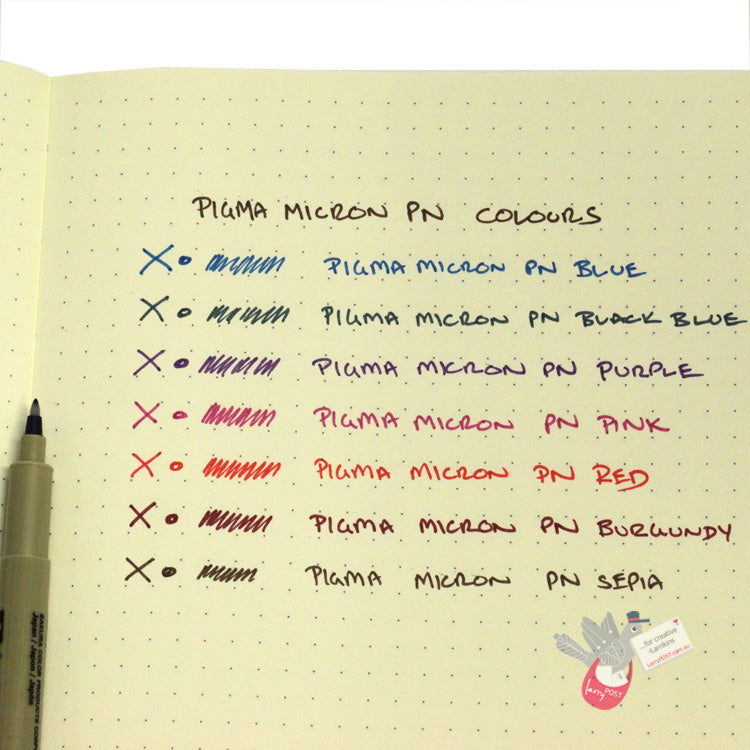 PIGMA MICRON PN COLOURS
X o PIGMA MICRON PN BLUE
X o PIGMA MICRON PN BLACK BLUE
X o PIGMA MICRON PN PURPLE
X o PIGMA MICRON PN PINK
X o PIGMA MICRON PN RED
X o PIGMA MICRON PN BURGUNDY
X o PIGMA MICRON PN SEPIA
SAKURA COLOR PRODUCTS CORP
Japan Japan / Japan
...for creative
Larrikins
LarryPOST.com.au
Larry POST